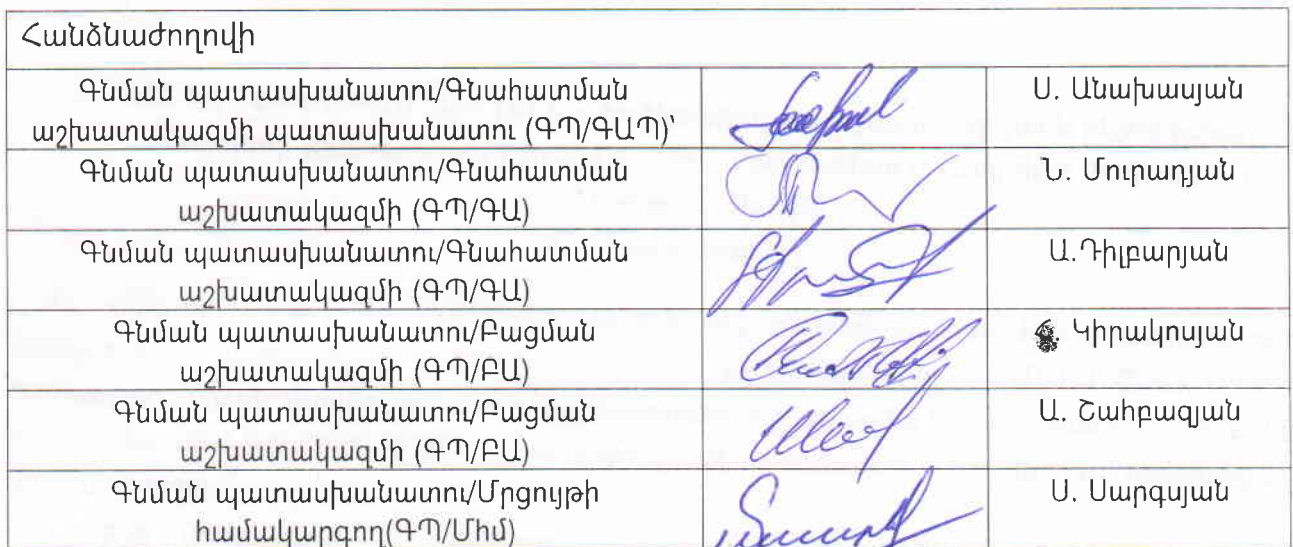 Հանձնաժողովի
Գնման պատասխանատու/Գնահատման
աշխատակազմի պատասխանատու (ԳՊ/ԳԱՊ)՝
Ս. Անախասյան
Գնման պատասխանատու/Գնահատման
աշխատակազմի (ԳՊ/ԳԱ)
Ն. Մուրադյան
Գնման պատասխանատու/Գնահատման
աշխատակազմի (ԳՊ/ԳԱ)
Ա.Դիլբարյան
Գնման պատասխանատու/Բացման
աշխատակազմի (ԳՊ/ԲԱ)
Կիրակոսյան
Գնման պատասխանատու/Բացման
աշխատակազմի (ԳՊ/ԲԱ)
Ա. Շահբազյան
Գնման պատասխանատու/Մրցույթի
համակարգող(ԳՊ/Միմ)
Ս. Սարգսյան